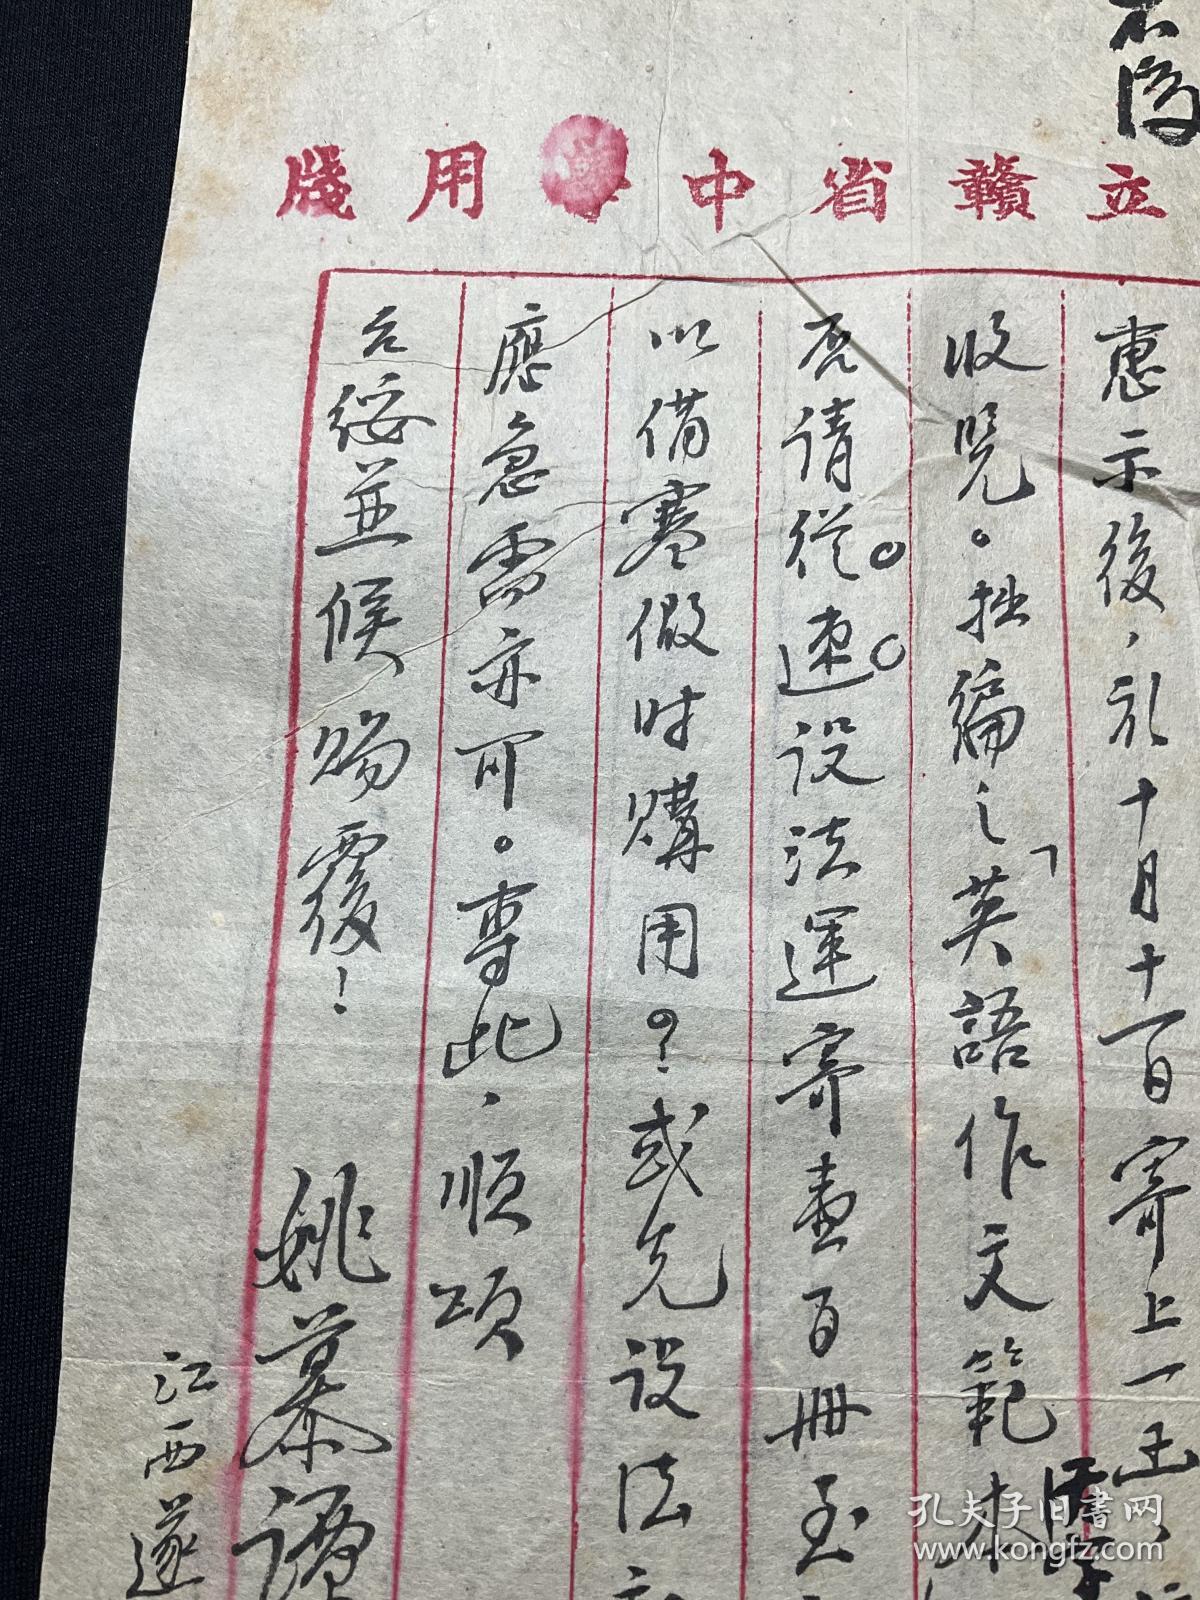 立贛省中學用牋
惠示後，於十月十一日寄上一函
收覽。拙編之「英語作文範本
請從速設法運寄壹百冊至
以備寒假時購用？或先設法
應急需亦可。專此，順頌
台綏並候賜覆！
姚慕譚
江西遂
孔夫子旧书网
www.kongfz.com